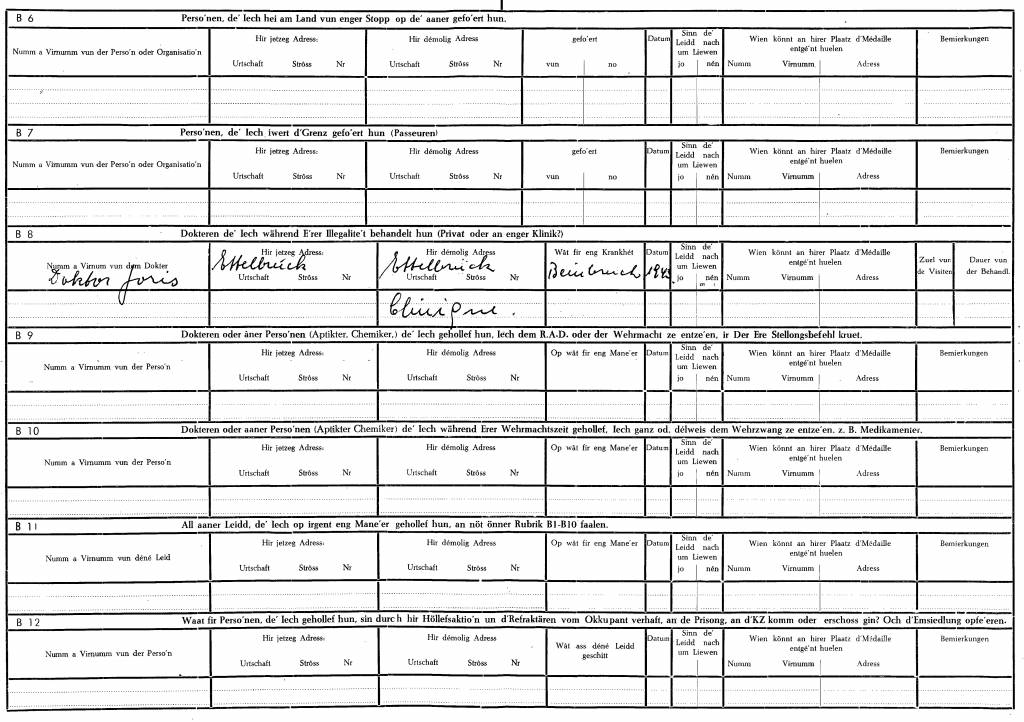 B 6 Perso'nen, de' Iech hei am Land vun enger Stopp op de' aaner gefo'ert hun.
Numm a Virnumm vun der Perso'n oder Organisatio'n Hir jetzeg Adress: Hir démolig Adress gefo'ert Datum Sinn de' Leidd nach um Liewen Wien könnt an hirer Plaatz d'Médaille entgé'nt huelen Bemierkungen
Urtschaft Ströss Nr Urtschaft Ströss Nr vun no jo nén Numm Virnumm Adress
B 7 Perso'nen, de' Iech iwert d'Grenz gefo'ert hun (Passeuren)
Numm a Virnumm vun der Perso'n oder Organisatio'n Hir jetzeg Adress: Hir démolig Adress gefo'ert Datum Sinn de' Leidd nach um Liewen Wien könnt an hirer Plaatz d'Médaille entgé'nt huelen Bemierkungen
Urtschaft Ströss Nr Urtschaft Ströss Nr vun no jo nén Numm Virnumm Adress
B 8 Dokteren de' Iech während E'rer Illegalite't behandelt hun (Privat oder an enger Klinik?)
Numm a Virnum vun dem Dokter Hir jetzeg Adress: Hir démolig Adress Wât fir eng Krankhét Datum Sinn de' Leidd nach um Liewen Wien könnt an hirer Plaatz d'Médaille entgé'nt huelen Zuel vun de Visiten Dauer vun der Behandl.
Urtschaft Ströss Nr Urtschaft Ströss Nr jo nén Numm Virnumm Adress
Doktor Joris Ettelbrück Ettelbrück Beinbruch
Clinique.
B 9 Dokteren oder âner Perso'nen (Aptikter. Chemiker.) de' Iech gehollef hun, Iech dem R.A.D. oder der Wehrmacht ze entze'en, ir Der Ere Stellongsbefehl kruet.
Numm a Virnumm vun der Perso'n Hir jetzeg Adress: Hir démolig Adress Op wât fir eng Mane'er Datum Sinn de' Leidd nach um Liewen Wien könnt an hirer Plaatz d'Médaille entgé'nt huelen Bemierkungen
Urtschaft Ströss Nr Urtschaft Ströss Nr jo nén Numm Virnumm Adress
B 10 Dokteren oder aaner Perso'nen (Aptikter Chemiker) de' Iech während Erer Wehrmachtszeit gehollef, Iech ganz od. délweis dem Wehrzwang ze entze'en. z. B. Medikamenter.
Numm a Virnumm vun der Perso'n Hir jetzeg Adress: Hir démolig Adress Op wât fir eng Mane'er Datum Sinn de' Leidd nach um Liewen Wien könnt an hirer Plaatz d'Médaille entgé'nt huelen Bemierkungen
Urtschaft Ströss Nr Urtschaft Ströss Nr jo nén Numm Virnumm Adress
B 11 All aaner Leidd, de' Iech op irgent eng Mane'er gehollef hun, an nöt önner Rubrik B1-B10 faalen.
Numm a Virnumm vun déné Leid Hir jetzeg Adress: Hir démolig Adress Op wât fir eng Mane'er Datum Sinn de' Leidd nach um Liewen Wien könnt an hirer Plaatz d'Médaille entgé'nt huelen Bemierkungen
Urtschaft Ströss Nr Urtschaft Ströss Nr jo nén Numm Virnumm Adress
B 12 Waat fir Perso'nen, de' Iech gehollef hun, sin durch hir Höllefsaktio'n un d'Refraktären vom Okkupant verhaft, an de Prisong, an d'KZ komm oder erschoss gin? Och d'Emsiedlung opfe'eren.
Numm a Virnumm vun der Perso'n Hir jetzeg Adress: Hir démolig Adress Wât ass déné Leidd geschitt Datum Sinn de' Leidd nach um Liewen Wien könnt an hirer Plaatz d'Médaille entgé'nt huelen Bemierkungen
Urtschaft Ströss Nr Urtschaft Ströss Nr jo nén Numm Virnumm Adress